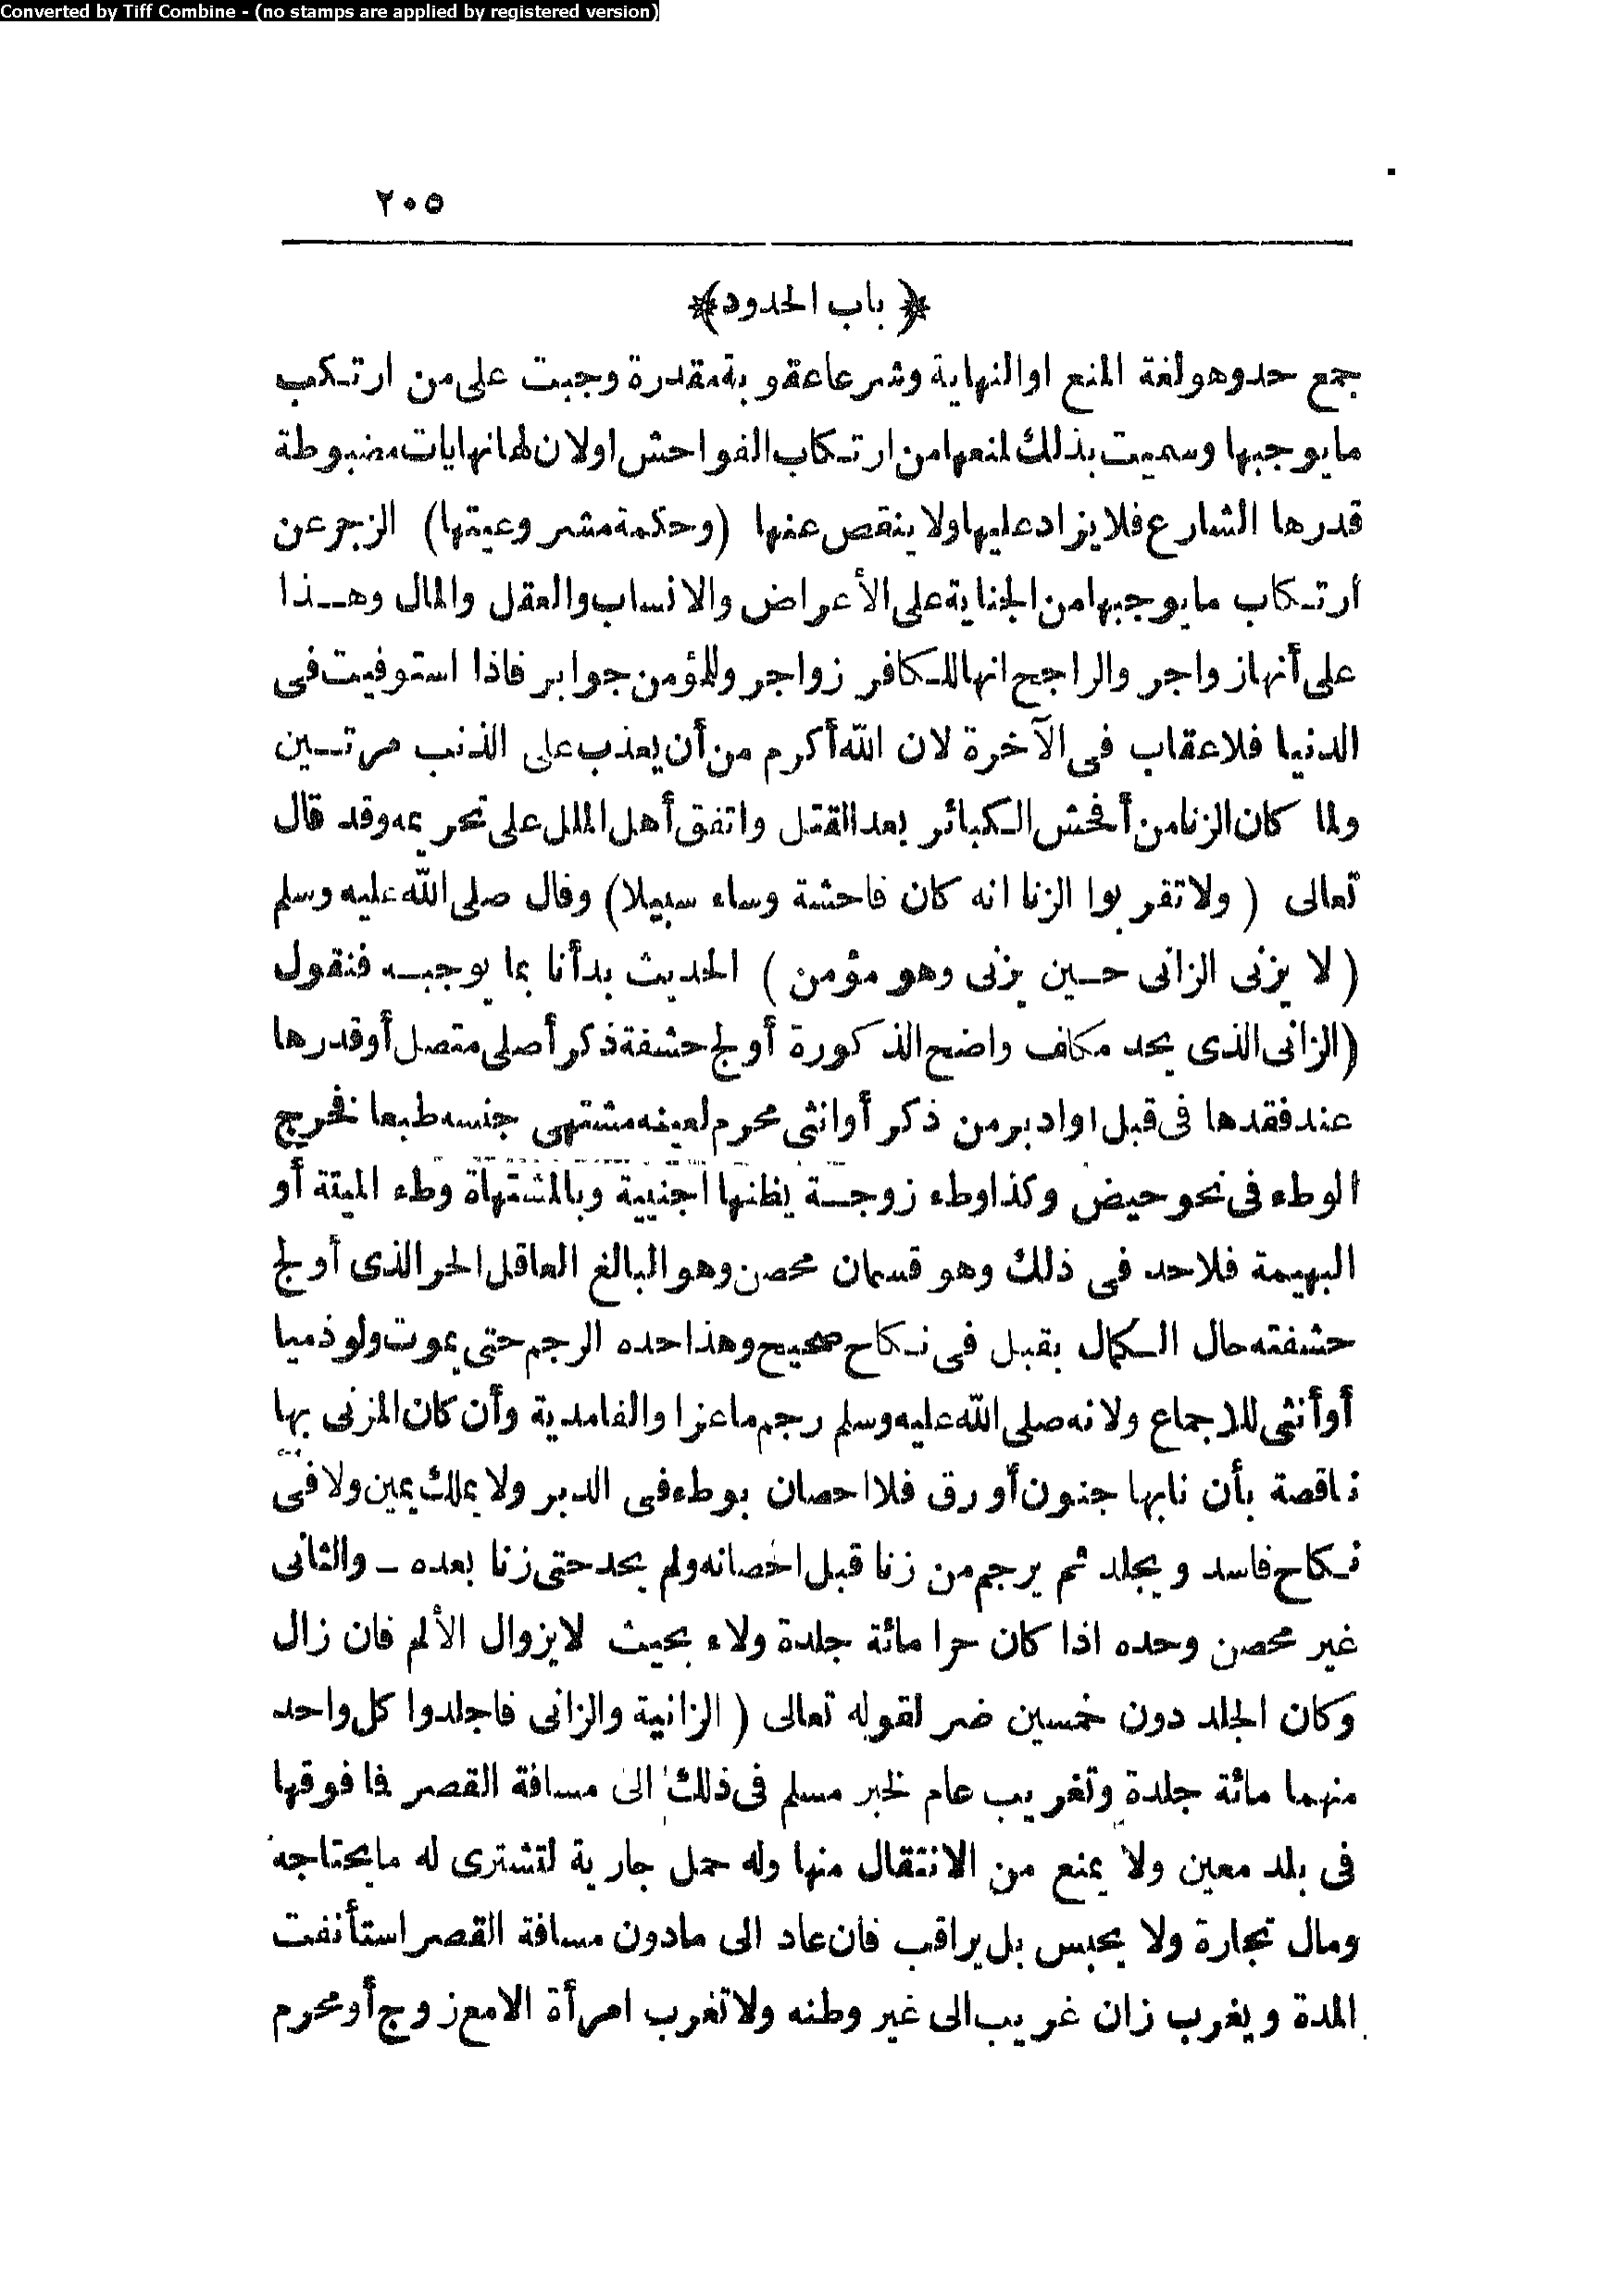 Converted by Tiff Combine - (no stamps are applied by registered version)
٢٠٥
﴿ باب الحدود ﴾
جمع حد وهو لغة المنع او النهاية وشرعا عقوبة مقدرة وجبت على من ارتكب
ما يوجبها وسميت بذلك لمنعها من ارتكاب الفواحش او لان لها نهايات مضبوطة
قدرها الشارع فلا يزاد عليها ولا ينقص عنها (وحكمة مشروعيتها) الزجر عن
ارتكاب ما يوجبها من الجناية على الأعراض والانساب والعقل والمال وهذا
على أنها زواجر والراجح انها للكافر زواجر وللمؤمن جوابر فاذا استوفيت فى
الدنيا فلا عقاب فى الآخرة لان الله أكرم من أن يعذب على الذنب مرتين
ولما كان الزنا من أفحش الكبائر بعد القتل واتفق أهل الملل على تحريمه وقد قال
تعالى ( ولا تقربوا الزنا انه كان فاحشة وساء سبيلا) وقال صلى الله عليه وسلم
( لا يزنى الزانى حين يزنى وهو مؤمن ) الحديث بدأنا بما يوجبه فنقول
(الزانى الذى يحد مكلف واضح الذكورة أولج حشفة ذكر أصلى متصل أو قدرها
عند فقدها فى قبل او ادبر من ذكر أو انثى محرم لعينه مشتهى جنسه طبعا فخرج
الوطء فى نحو حيض وكذا وطء زوجة يظنها اجنبية وبالمشتهاة وطء الميتة أو
البهيمة فلا حد فى ذلك وهو قسمان محصن وهو البالغ العاقل الحر الذى أولج
حشفته حال الكمال بقبل فى نكاح صحيح وهذا حده الرجم حتى يموت ولو ذميا
أو أنثى للاجماع ولانه صلى الله عليه وسلم رجم ماعزا والغامدية وأن كان المزنى بها
ناقصة بأن نابها جنون أو رق فلا احصان بوطء فى الدبر ولا بملك يمين ولا فى
نكاح فاسد ويجلد ثم يرجم من زنا قبل احصانه ولم يحد حتى زنا بعده ـ والثانى
غير محصن وحده اذا كان حرا مائة جلدة ولاء بحيث لا يزوال الألم فان زال
وكان الجلد دون خمسين ضر لقوله تعالى ( الزانية والزانى فاجلدوا كل واحد
منهما مائة جلدة وتغريب عام لخبر مسلم فى ذلك الى مسافة القصر فما فوقها
فى بلد معين ولا يمنع من الانتقال منها وله حمل جارية لتشترى له ما يحتاجه
ومال تجارة ولا يحبس بل يراقب فان عاد الى ما دون مسافة القصر استأنفت
المدة ويغرب زان غريب الى غير وطنه ولا تغرب امرأة الا مع زوج أو محرم